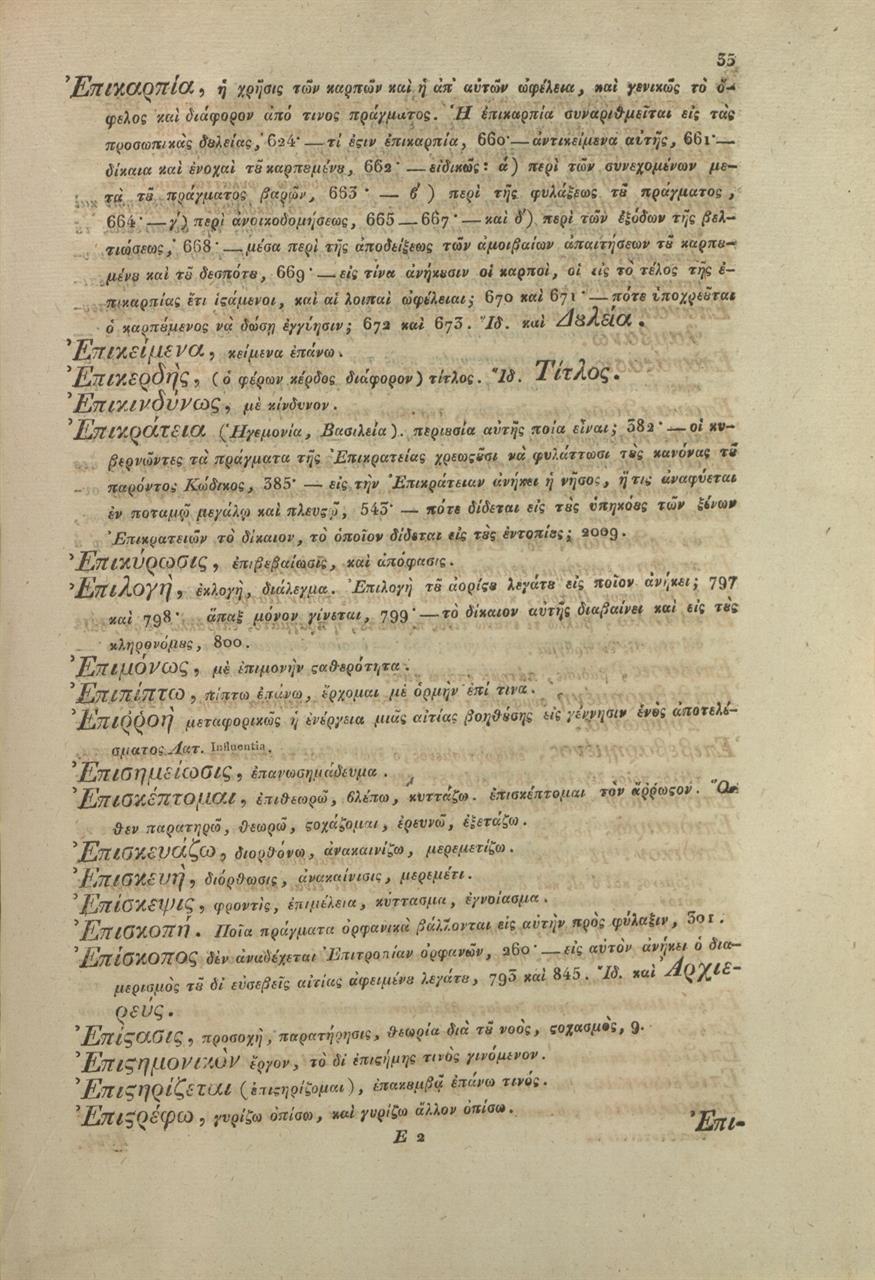 35
Ἐπικαρπία, ἡ χρῆσις τῶν καρπῶν καὶ ἡ ἀπ' αὐτῶν ὠφέλεια, καὶ γενικῶς τὸ ὄ-
φελος καὶ διάφορον ἀπό τινος πράγματος. Ἡ ἐπικαρπία συναριθμεῖται εἰς τὰς
προσωπικὰς δȣλείας, 624· — τί ἐςιν ἐπικαρπία, 660· — ἀντικείμενα αὐτῆς, 661· —
δίκαια καὶ ἐνοχαὶ τȣ͂ καρπȣμένȣ, 662· — εἰδικῶς: ά) περὶ τῶν συνεχομένων με-
τὰ τȣ͂ πράγματος βαρῶν, 663· — ϐ') περὶ τῆς φυλάξεως τȣ͂ πράγματος,
664· — γ') περὶ ἀνοικοδομήσεως, 665 — 667· — καὶ δ') περὶ τῶν ἐξόδων τῆς βελ-
τιώσεως, 668· — μέσα περὶ τῆς ἀποδείξεως τῶν ἀμοιβαίων ἀπαιτήσεων τȣ͂ καρπȣ-
μένȣ καὶ τȣ͂ δεσπότȣ, 669· — εἰς τίνα ἀνήκȣσιν οἱ καρποὶ, οἱ εἰς τὸ τέλος τῆς ἐ-
πικαρπίας ἔτι ἱςάμενοι, καὶ αἱ λοιπαὶ ὠφέλειαι; 670 καὶ 671· — πότε ὑποχρεȣ͂ται
ὁ καρπȣ́μενος νὰ δώσῃ ἐγγύησιν; 672 καὶ 673. Ἴδ. καὶ Δȣλεία.
Ἐπικείμενα, κείμενα ἐπάνω.
Ἐπικερδὴς, (ὁ φέρων κέρδος διάφορον) τίτλος. Ἴδ. Τίτλος.
Ἐπικινδύνως, μὲ κίνδυνον.
Ἐπικράτεια (Ἡγεμονία, Βασιλεία). περιȣσία αὐτῆς ποία εἶναι; 382· — οἱ κυ-
βερνῶντες τὰ πράγματα τῆς Ἐπικρατείας χρεωςȣ͂σι νὰ φυλάττωσι τȣ̀ς κανόνας τȣ͂
παρόντος Κώδικος, 385· — εἰς τὴν Ἐπικράτειαν ἀνήκει ἡ νῆσος, ἥτις ἀναφύεται
ἐν ποταμῷ μεγάλῳ καὶ πλευςῷ, 543· — πότε δίδεται εἰς τȣ̀ς ὑπηκόȣς τῶν ξένων
Ἐπικρατειῶν τὸ δίκαιον, τὸ ὁποῖον δίδεται εἰς τȣ̀ς ἐντοπίȣς; 2009.
Ἐπικύρωσις, ἐπιβεβαίωσις, καὶ ἀπόφασις.
Ἐπιλογὴ, ἐκλογὴ, διάλεγμα. Ἐπιλογὴ τȣ͂ ἀορίςȣ λεγάτȣ εἰς ποῖον ἀνήκει; 797
καὶ 798· ἅπαξ μόνον γίνεται, 799· — τὸ δίκαιον αὐτῆς διαβαίνει καὶ εἰς τȣ̀ς
κληρονόμȣς, 800.
Ἐπιμόνως, μὲ ἐπιμονὴν ςαθερότητα.
Ἐπιπίπτω, πίπτω ἐπάνω, ἔρχομαι μὲ ὁρμὴν ἐπί τινα.
Ἐπιῤῥοὴ μεταφορικῶς ἡ ἐνέργεια μιᾶς αἰτίας βοηθȣ́σης εἰς γέννησιν ἑνὸς ἀποτελέ-
σματος Λατ. Influentia.
Ἐπισημείωσις, ἐπανωσημάδευμα.
Ἐπισκέπτομαι, ἐπιθεωρῶ, ϐλέπω, κυττάζω. ἐπισκέπτομαι τὸν ἄῤῥωςον. Ὅ-
θεν παρατηρῶ, θεωρῶ, ςοχάζομαι, ἐρευνῶ, ἐξετάζω.
Ἐπισκευάζω, διορθόνω, ἀνακαινίζω, μερεμετίζω.
Ἐπισκευὴ, διόρθωσις, ἀνακαίνισις, μερεμέτι.
Ἐπίσκεψις, φροντὶς, ἐπιμέλεια, κύτταγμα, ἐγνοίασμα.
Ἐπισκοπή. Ποῖα πράγματα ὀρφανικὰ βάλλονται εἰς αὐτὴν πρὸς φύλαξιν, 301.
Ἐπίσκοπος δὲν ἀναδέχεται Ἐπιτροπίαν ὀρφανῶν, 260· — εἰς αὐτὸν ἀνήκει ὁ δια-
μερισμὸς τȣ͂ δι εὐσεβεῖς αἰτίας ἀφειμένȣ λεγάτȣ, 793 καὶ 845. Ἴδ. καὶ Ἀρχιε-
ρεύς.
Ἐπίςασις, προσοχὴ, παρατήρησις, θεωρία διὰ τȣ͂ νοὸς, ςοχασμὸς, 9.
Ἐπιςημονικὸν ἔργον, τὸ δι ἐπιςήμης τινὸς γινόμενον.
Ἐπιςηρίζεται (ἐπιςηρίζομαι), ἐπακȣμβᾷ ἐπάνω τινός.
Ἐπιςρέφω, γυρίζω ὀπίσω, καὶ γυρίζω ἄλλον ὀπίσω.
Ἐπι-
E 2